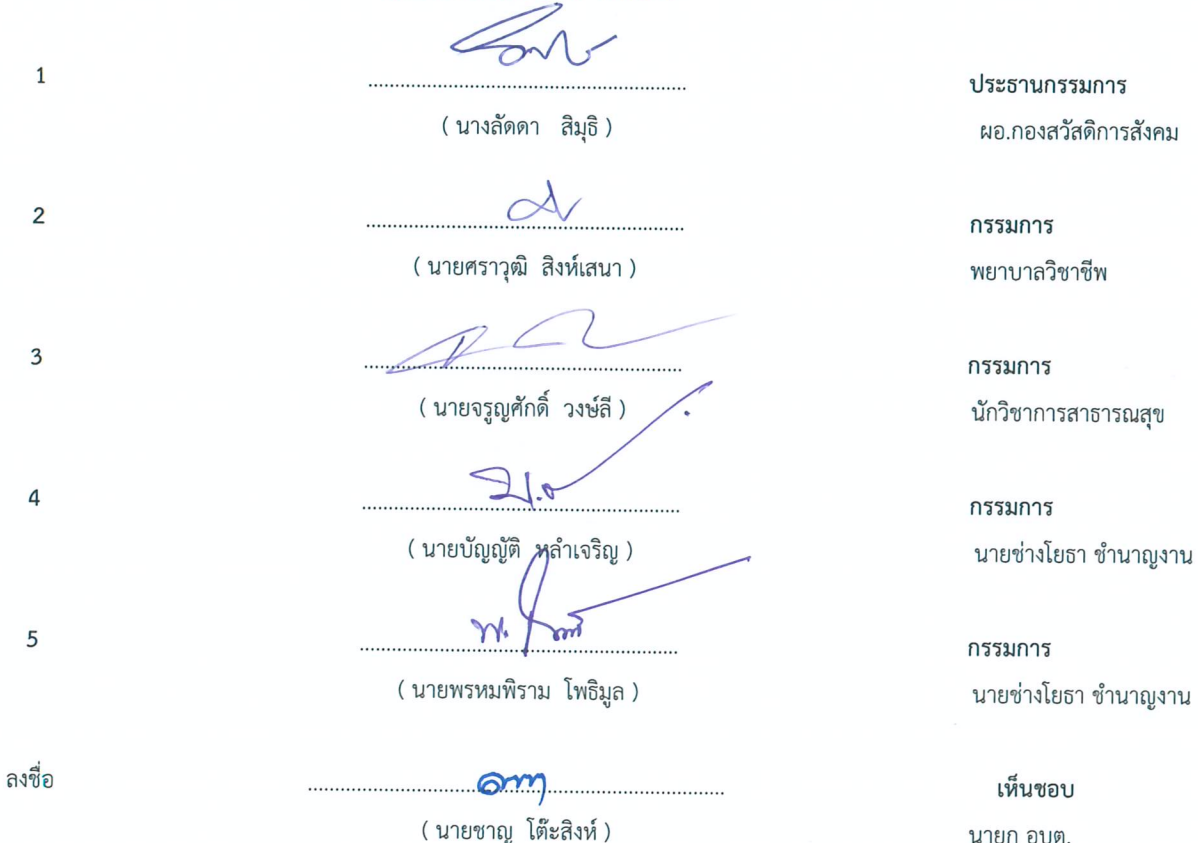 1 ประธานกรรมการ
( นางลัดดา สิมุธิ ) ผอ.กองสวัสดิการสังคม
2 กรรมการ
( นายศราวุฒิ สิงห์เสนา ) พยาบาลวิชาชีพ
3 กรรมการ
( นายจรูญศักดิ์ วงษ์ลี ) นักวิชาการสาธารณสุข
4 กรรมการ
( นายบัญญัติ หลำเจริญ ) นายช่างโยธา ชำนาญงาน
5 กรรมการ
( นายพรหมพิราม โพธิมูล ) นายช่างโยธา ชำนาญงาน
ลงชื่อ เห็นชอบ
( นายชาญ โต๊ะสิงห์ ) นายก อบต.